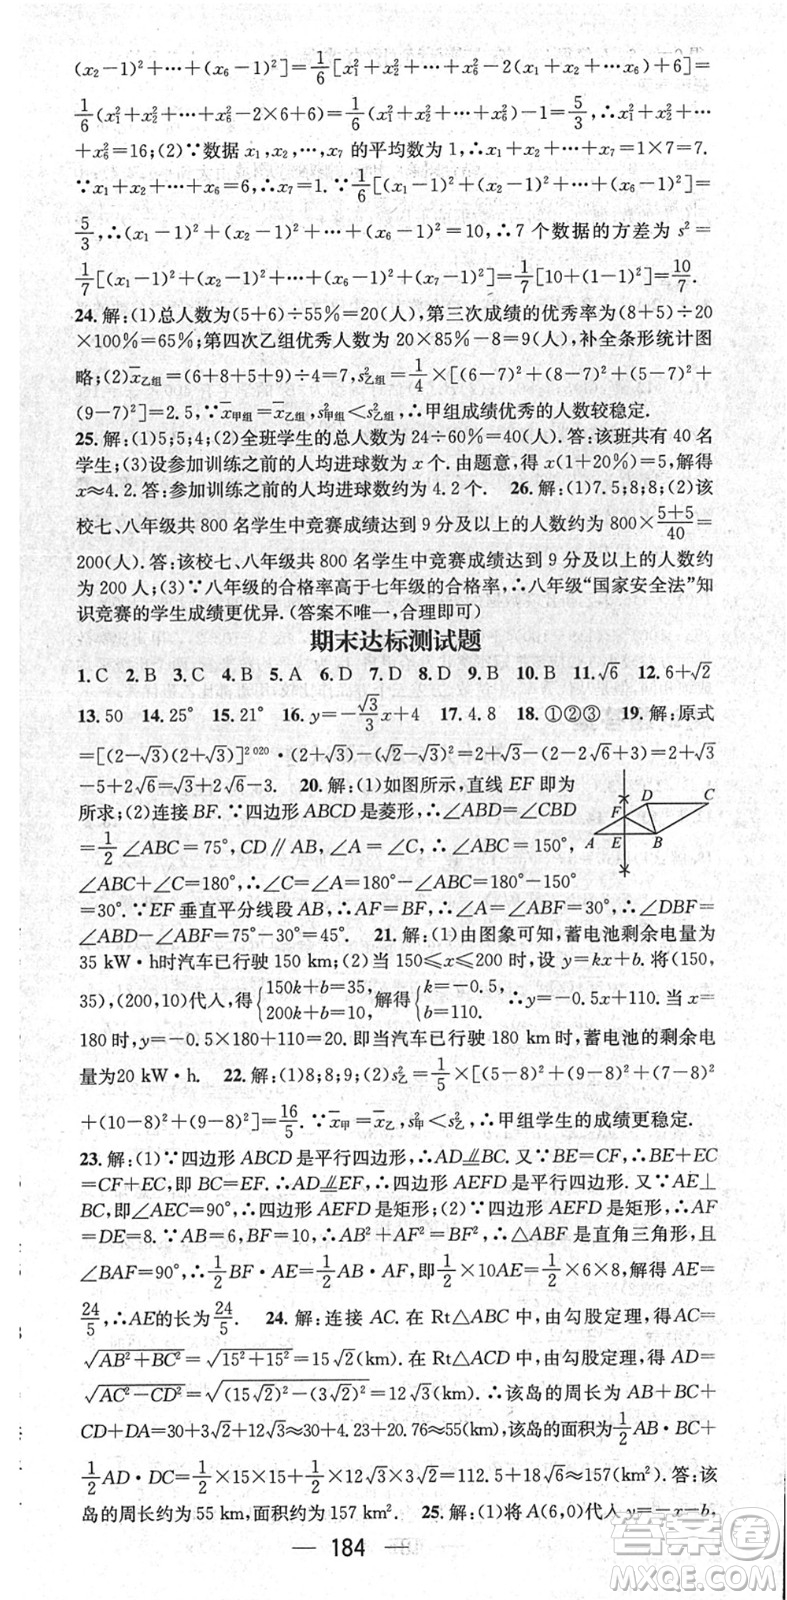 (x₂－1)²＋…＋(x₆－1)²]＝1/6[x₁²＋x₂²＋…＋x₆²－2(x₁＋x₂＋…x₆)＋6]＝
1/6(x₁²＋x₂²＋…＋x₆²－2×6＋6)＝1/6(x₁²＋x₂²＋…＋x₆²)－1＝5/3,∴x₁²＋x₂²＋…
＋x₆²＝16;(2)∵数据 x₁,x₂,…,x₇ 的平均数为 1,∴x₁＋x₂＋…＋x₇＝1×7＝7.
∵x₁＋x₂＋…＋x₆＝6,∴x₇＝1.∵1/6[(x₁－1)²＋(x₂－1)²＋…＋(x₆－1)²]＝
5/3,∴(x₁－1)²＋(x₂－1)²＋…＋(x₆－1)²＝10,∴7 个数据的方差为 s²＝
1/7[(x₁－1)²＋(x₂－1)²＋…＋(x₆－1)²＋(x₇－1)²]＝1/7[10＋(1－1)²]＝10/7.
24.解:(1)总人数为(5＋6)÷55%＝20(人),第三次成绩的优秀率为(8＋5)÷20
×100%＝65%;第四次乙组优秀人数为 20×85%－8＝9(人),补全条形统计图
略;(2)x̄乙组＝(6＋8＋5＋9)÷4＝7,s²乙组＝1/4×[(6－7)²＋(8－7)²＋(5－7)²＋
(9－7)²]＝2.5,∵x̄甲组＝x̄乙组,s²甲组＜s²乙组,∴甲组成绩优秀的人数较稳定.
25.解:(1)5;5;4;(2)全班学生的总人数为 24÷60%＝40(人).答:该班共有 40 名
学生;(3)设参加训练之前的人均进球数为 x 个.由题意,得 x(1＋20%)＝5,解得
x≈4.2.答:参加训练之前的人均进球数约为 4.2 个. 26.解:(1)7.5;8;8;(2)该
校七、八年级共 800 名学生中竞赛成绩达到 9 分及以上的人数约为 800×(5＋5)/40＝
200(人).答:该校七、八年级共 800 名学生中竞赛成绩达到 9 分及以上的人数约
为 200 人;(3)∵八年级的合格率高于七年级的合格率,∴八年级“国家安全法”知
识竞赛的学生成绩更优异.(答案不唯一,合理即可)
期末达标测试题
1.C 2.B 3.C 4.B 5.A 6.D 7.D 8.D 9.B 10.B 11.√6 12.6＋√2
13.50 14.25° 15.21° 16.y＝－√3/3x＋4 17.4.8 18.①②③ 19.解:原式
＝[(2－√3)(2＋√3)]²⁰²⁰·(2＋√3)－(√2－√3)²＝2＋√3－(2－2√6＋3)＝2＋√3
－5＋2√6＝√3＋2√6－3. 20.解:(1)如图所示,直线 EF 即为
所求;(2)连接 BF.∵四边形 ABCD 是菱形,∴∠ABD＝∠CBD
＝1/2∠ABC＝75°,CD∥AB,∠A＝∠C,∴∠ABC＝150°,
∠ABC＋∠C＝180°,∴∠C＝∠A＝180°－∠ABC＝180°－150°
＝30°.∵EF 垂直平分线段 AB,∴AF＝BF,∴∠A＝∠ABF＝30°,∴∠DBF＝
∠ABD－∠ABF＝75°－30°＝45°. 21.解:(1)由图象可知,蓄电池剩余电量为
35 kW·h时汽车已行驶 150 km;(2)当 150≤x≤200 时,设 y＝kx＋b.将(150,
35),(200,10)代入,得{150k＋b＝35, 200k＋b＝10,解得{k＝－0.5, b＝110. ∴y＝－0.5x＋110.当 x＝
180 时,y＝－0.5×180＋110＝20.即当汽车已行驶 180 km 时,蓄电池的剩余电
量为20 kW·h. 22.解:(1)8;8;9;(2)s²乙＝1/5×[(5－8)²＋(9－8)²＋(7－8)²
＋(10－8)²＋(9－8)²]＝16/5.∵x̄甲＝x̄乙,s²甲＜s²乙,∴甲组学生的成绩更稳定.
23.解:(1)∵四边形 ABCD 是平行四边形,∴AD⫽BC.又∵BE＝CF,∴BE＋EC
＝CF＋EC,即 BC＝EF.∴AD⫽EF,∴四边形 AEFD 是平行四边形.又∵AE⊥
BC,即∠AEC＝90°,∴四边形 AEFD 是矩形;(2)∵四边形 AEFD 是矩形,∴AF
＝DE＝8.∵AB＝6,BF＝10,∴AB²＋AF²＝BF²,∴△ABF 是直角三角形,且
∠BAF＝90°,∴1/2BF·AE＝1/2AB·AF,即1/2×10AE＝1/2×6×8,解得 AE＝
24/5,∴AE的长为24/5. 24.解:连接 AC.在 Rt△ABC 中,由勾股定理,得 AC＝
√(AB²＋BC²)＝√(15²＋15²)＝15√2(km).在 Rt△ACD 中,由勾股定理,得 AD＝
√(AC²－CD²)＝√((15√2)²－(3√2)²)＝12√3(km).∴该岛的周长为 AB＋BC＋
CD＋DA＝30＋3√2＋12√3≈30＋4.23＋20.76≈55(km),该岛的面积为1/2AB·BC＋
1/2AD·DC＝1/2×15×15＋1/2×12√3×3√2＝112.5＋18√6≈157(km²).答:该
岛的周长约为 55 km,面积约为 157 km². 25.解:(1)将 A(6,0)代入 y＝－x－b,
D
C
F
A
E
B
184
答案圈
MXQE.COM